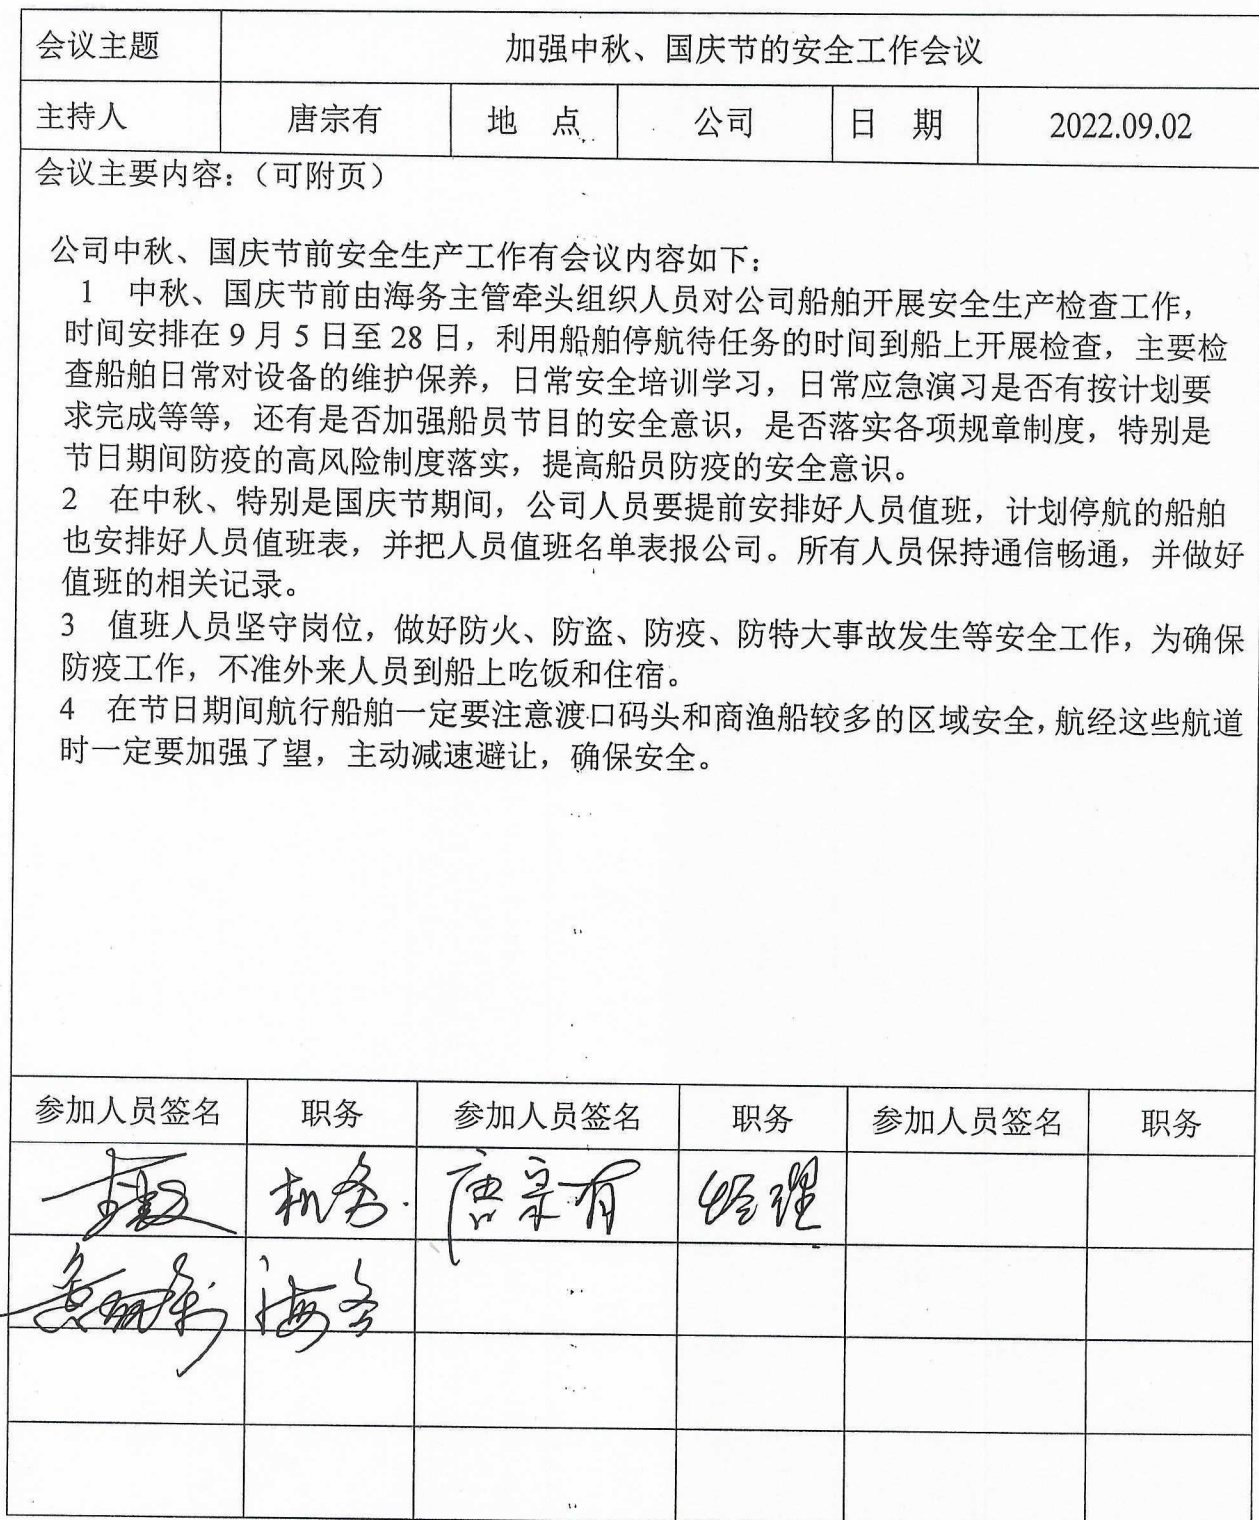 会议主题 加强中秋、国庆节的安全工作会议
主持人 唐宗有 地 点 公司 日 期 2022.09.02
会议主要内容：（可附页）
公司中秋、国庆节前安全生产工作有会议内容如下：
1 中秋、国庆节前由海务主管牵头组织人员对公司船舶开展安全生产检查工作，
时间安排在 9 月 5 日至 28 日，利用船舶停航待任务的时间到船上开展检查，主要检
查船舶日常对设备的维护保养，日常安全培训学习，日常应急演习是否有按计划要
求完成等等，还有是否加强船员节目的安全意识，是否落实各项规章制度，特别是
节日期间防疫的高风险制度落实，提高船员防疫的安全意识。
2 在中秋、特别是国庆节期间，公司人员要提前安排好人员值班，计划停航的船舶
也安排好人员值班表，并把人员值班名单表报公司。所有人员保持通信畅通，并做好
值班的相关记录。
3 值班人员坚守岗位，做好防火、防盗、防疫、防特大事故发生等安全工作，为确保
防疫工作，不准外来人员到船上吃饭和住宿。
4 在节日期间航行船舶一定要注意渡口码头和商渔船较多的区域安全，航经这些航道
时一定要加强了望，主动减速避让，确保安全。
参加人员签名 职务 参加人员签名 职务 参加人员签名 职务
机务 唐宗有 经理
海务